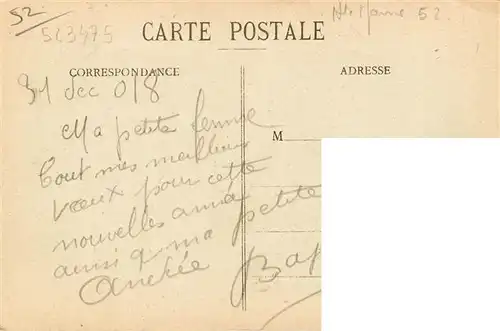 52
523475
Hte Marne 52
CARTE POSTALE
CORRESPONDANCE
ADRESSE
31 dec 018
Ma petite femme
Tout mes meilleurs
vœux pour cette
nouvelles année
ainsi q ma petite
Andrée
M